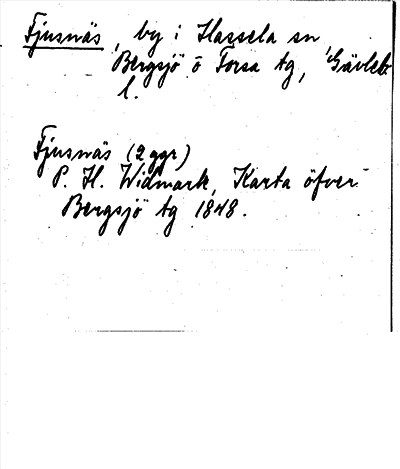 Fjusnäs, by i Hassela sn
Bergsjö o Forsa tg, Gävleb.
l.
Fjusnäs (2 ggr)
P. H. Widmark, Karta öfver
Bergsjö tg 1848.